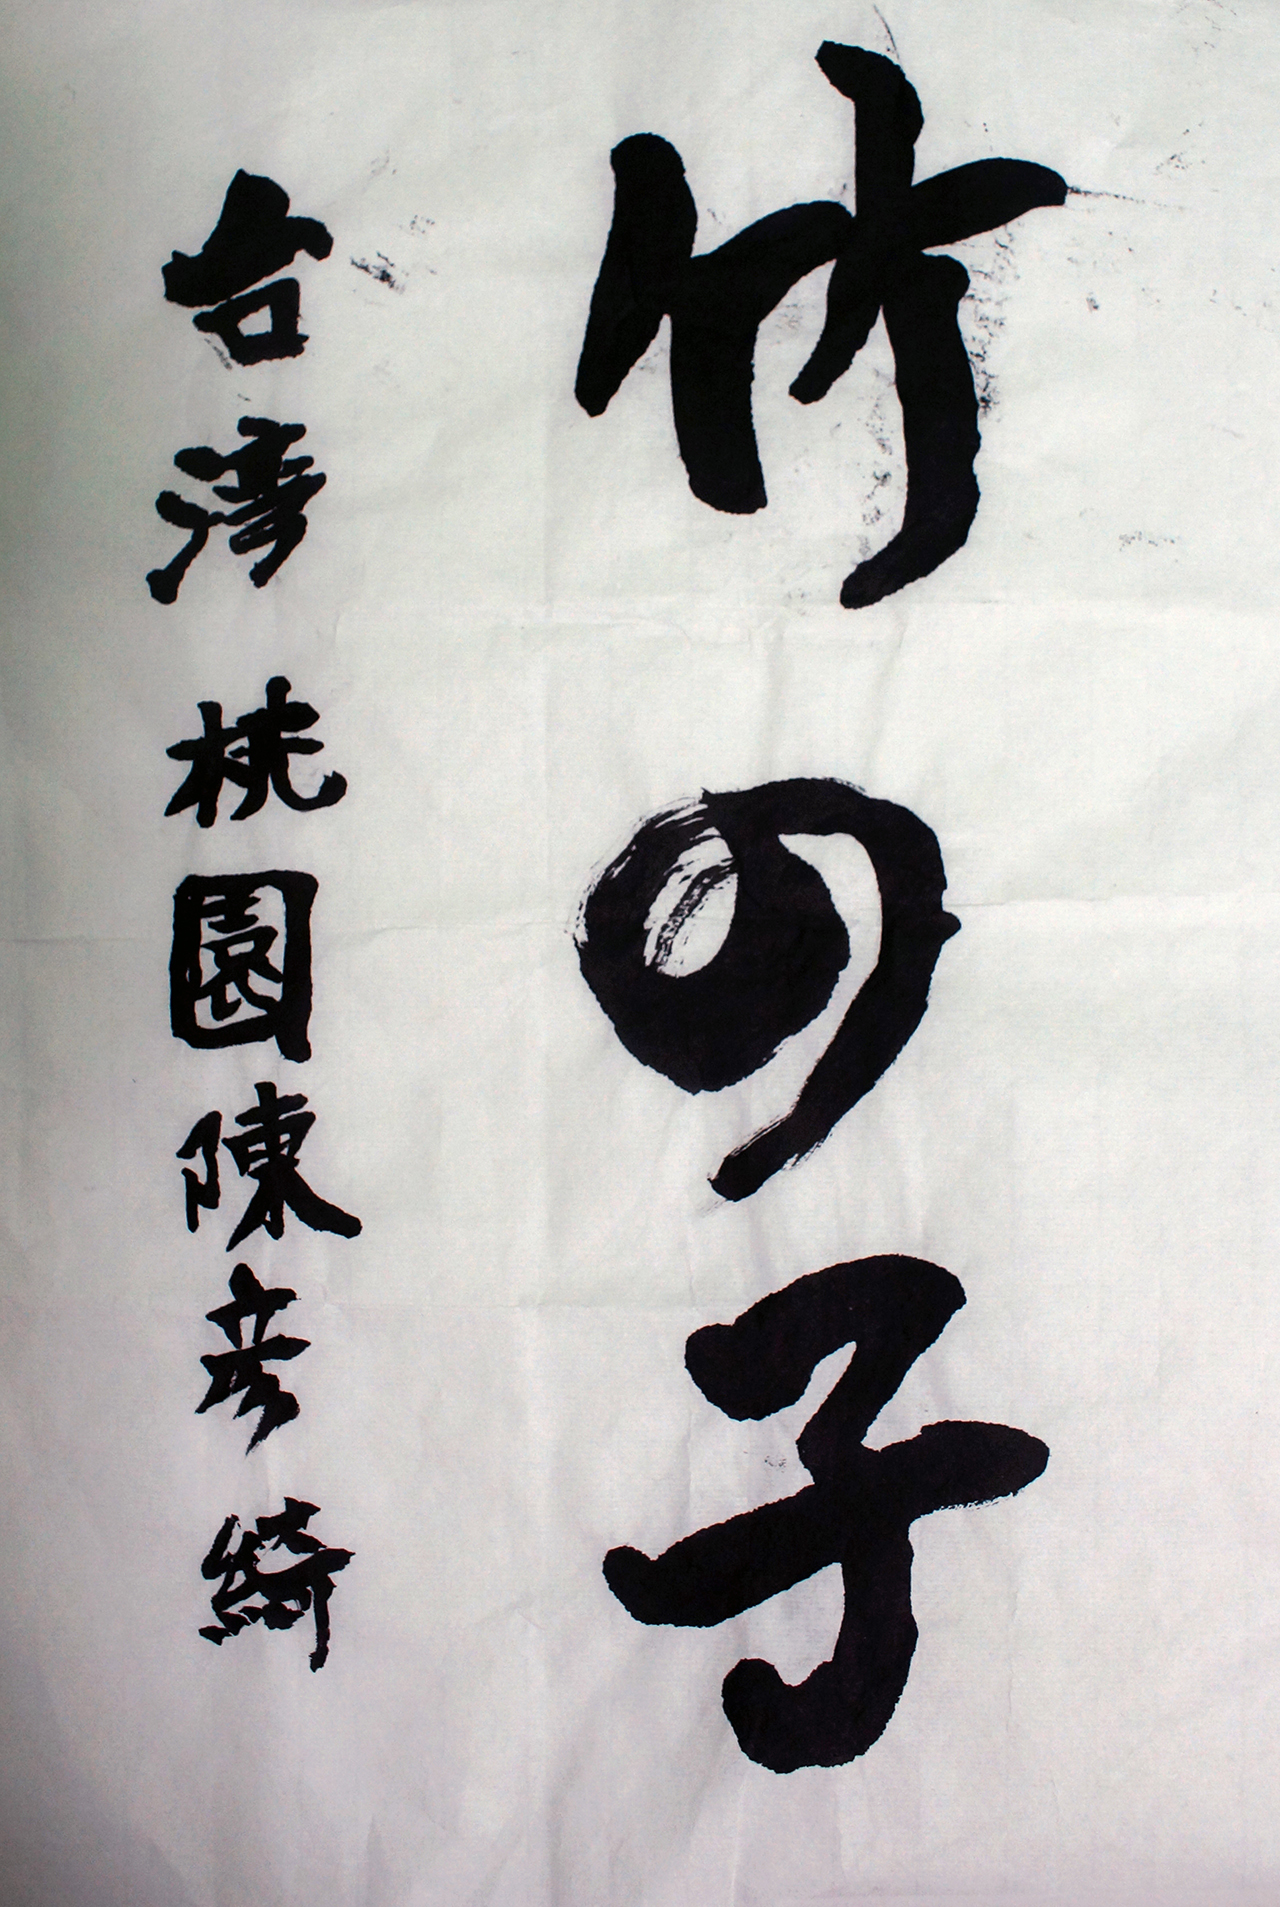 竹の子
台湾桃園陳彦綺